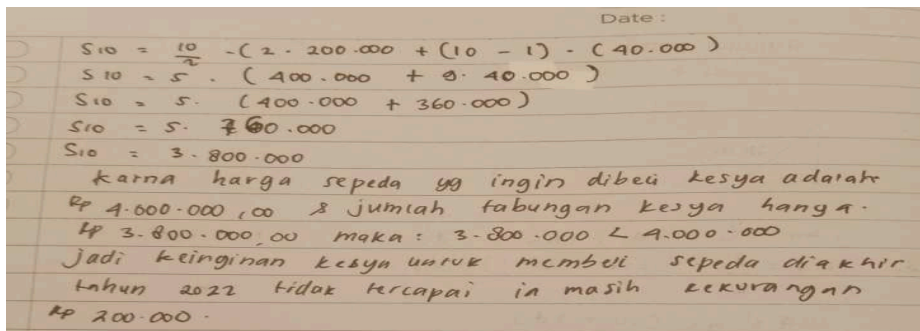 Date :
S10 = 10/2 - ( 2 . 200.000 + (10 - 1) - ( 40.000 )
S10 = 5 . ( 400.000 + 9. 40.000 )
S10 = 5. ( 400.000 + 360.000 )
S10 = 5. 760.000
S10 = 3.800.000
karna harga sepeda yg ingin dibeli kesya adalah
Rp 4.000.000,00 & jumlah tabungan kesya hanya.
Rp 3.800.000,00 maka : 3.800.000 < 4.000.000
jadi keinginan kesya untuk membeli sepeda diakhir
tahun 2022 tidak tercapai ia masih kekurangan
Rp 200.000.